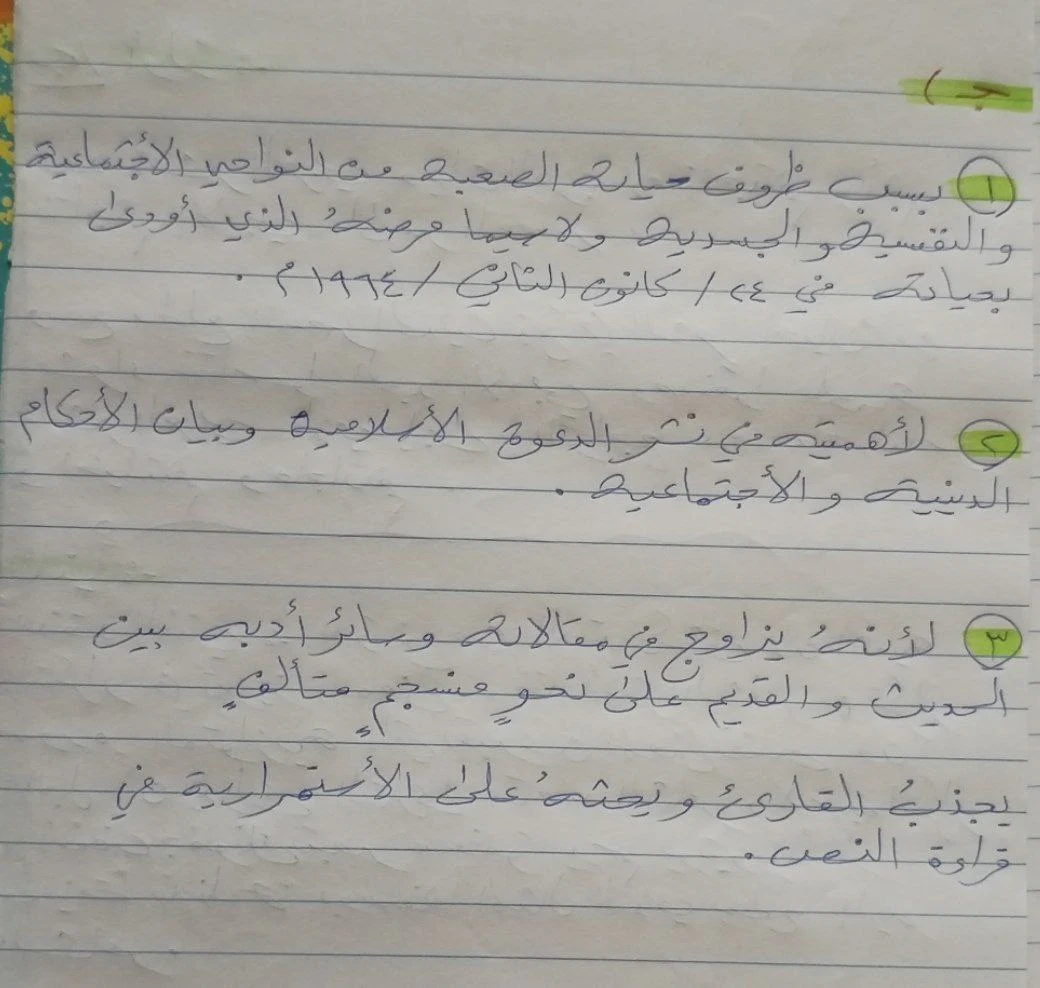 جـ)
١ بسبب ظروف حياته الصعبة من النواحي الأجتماعية
والنفسية والجسدية ولاسيما مرضهُ الذي أودى
بحياته في ٢٤ / كانون الثاني / ١٩٩٤م .
٢ لأهميته في نشر الدعوة الأسلامية وبيان الأحكام
الدينية والأجتماعية .
٣ لأنهُ يزاوج في مقالاته وسائر أدبه بين
الحديث والقديم على نحوٍ منسجمٍ متآلفٍ
يجذبُ القارئ ويحثهُ على الأستمرارية في
قراءة النص .